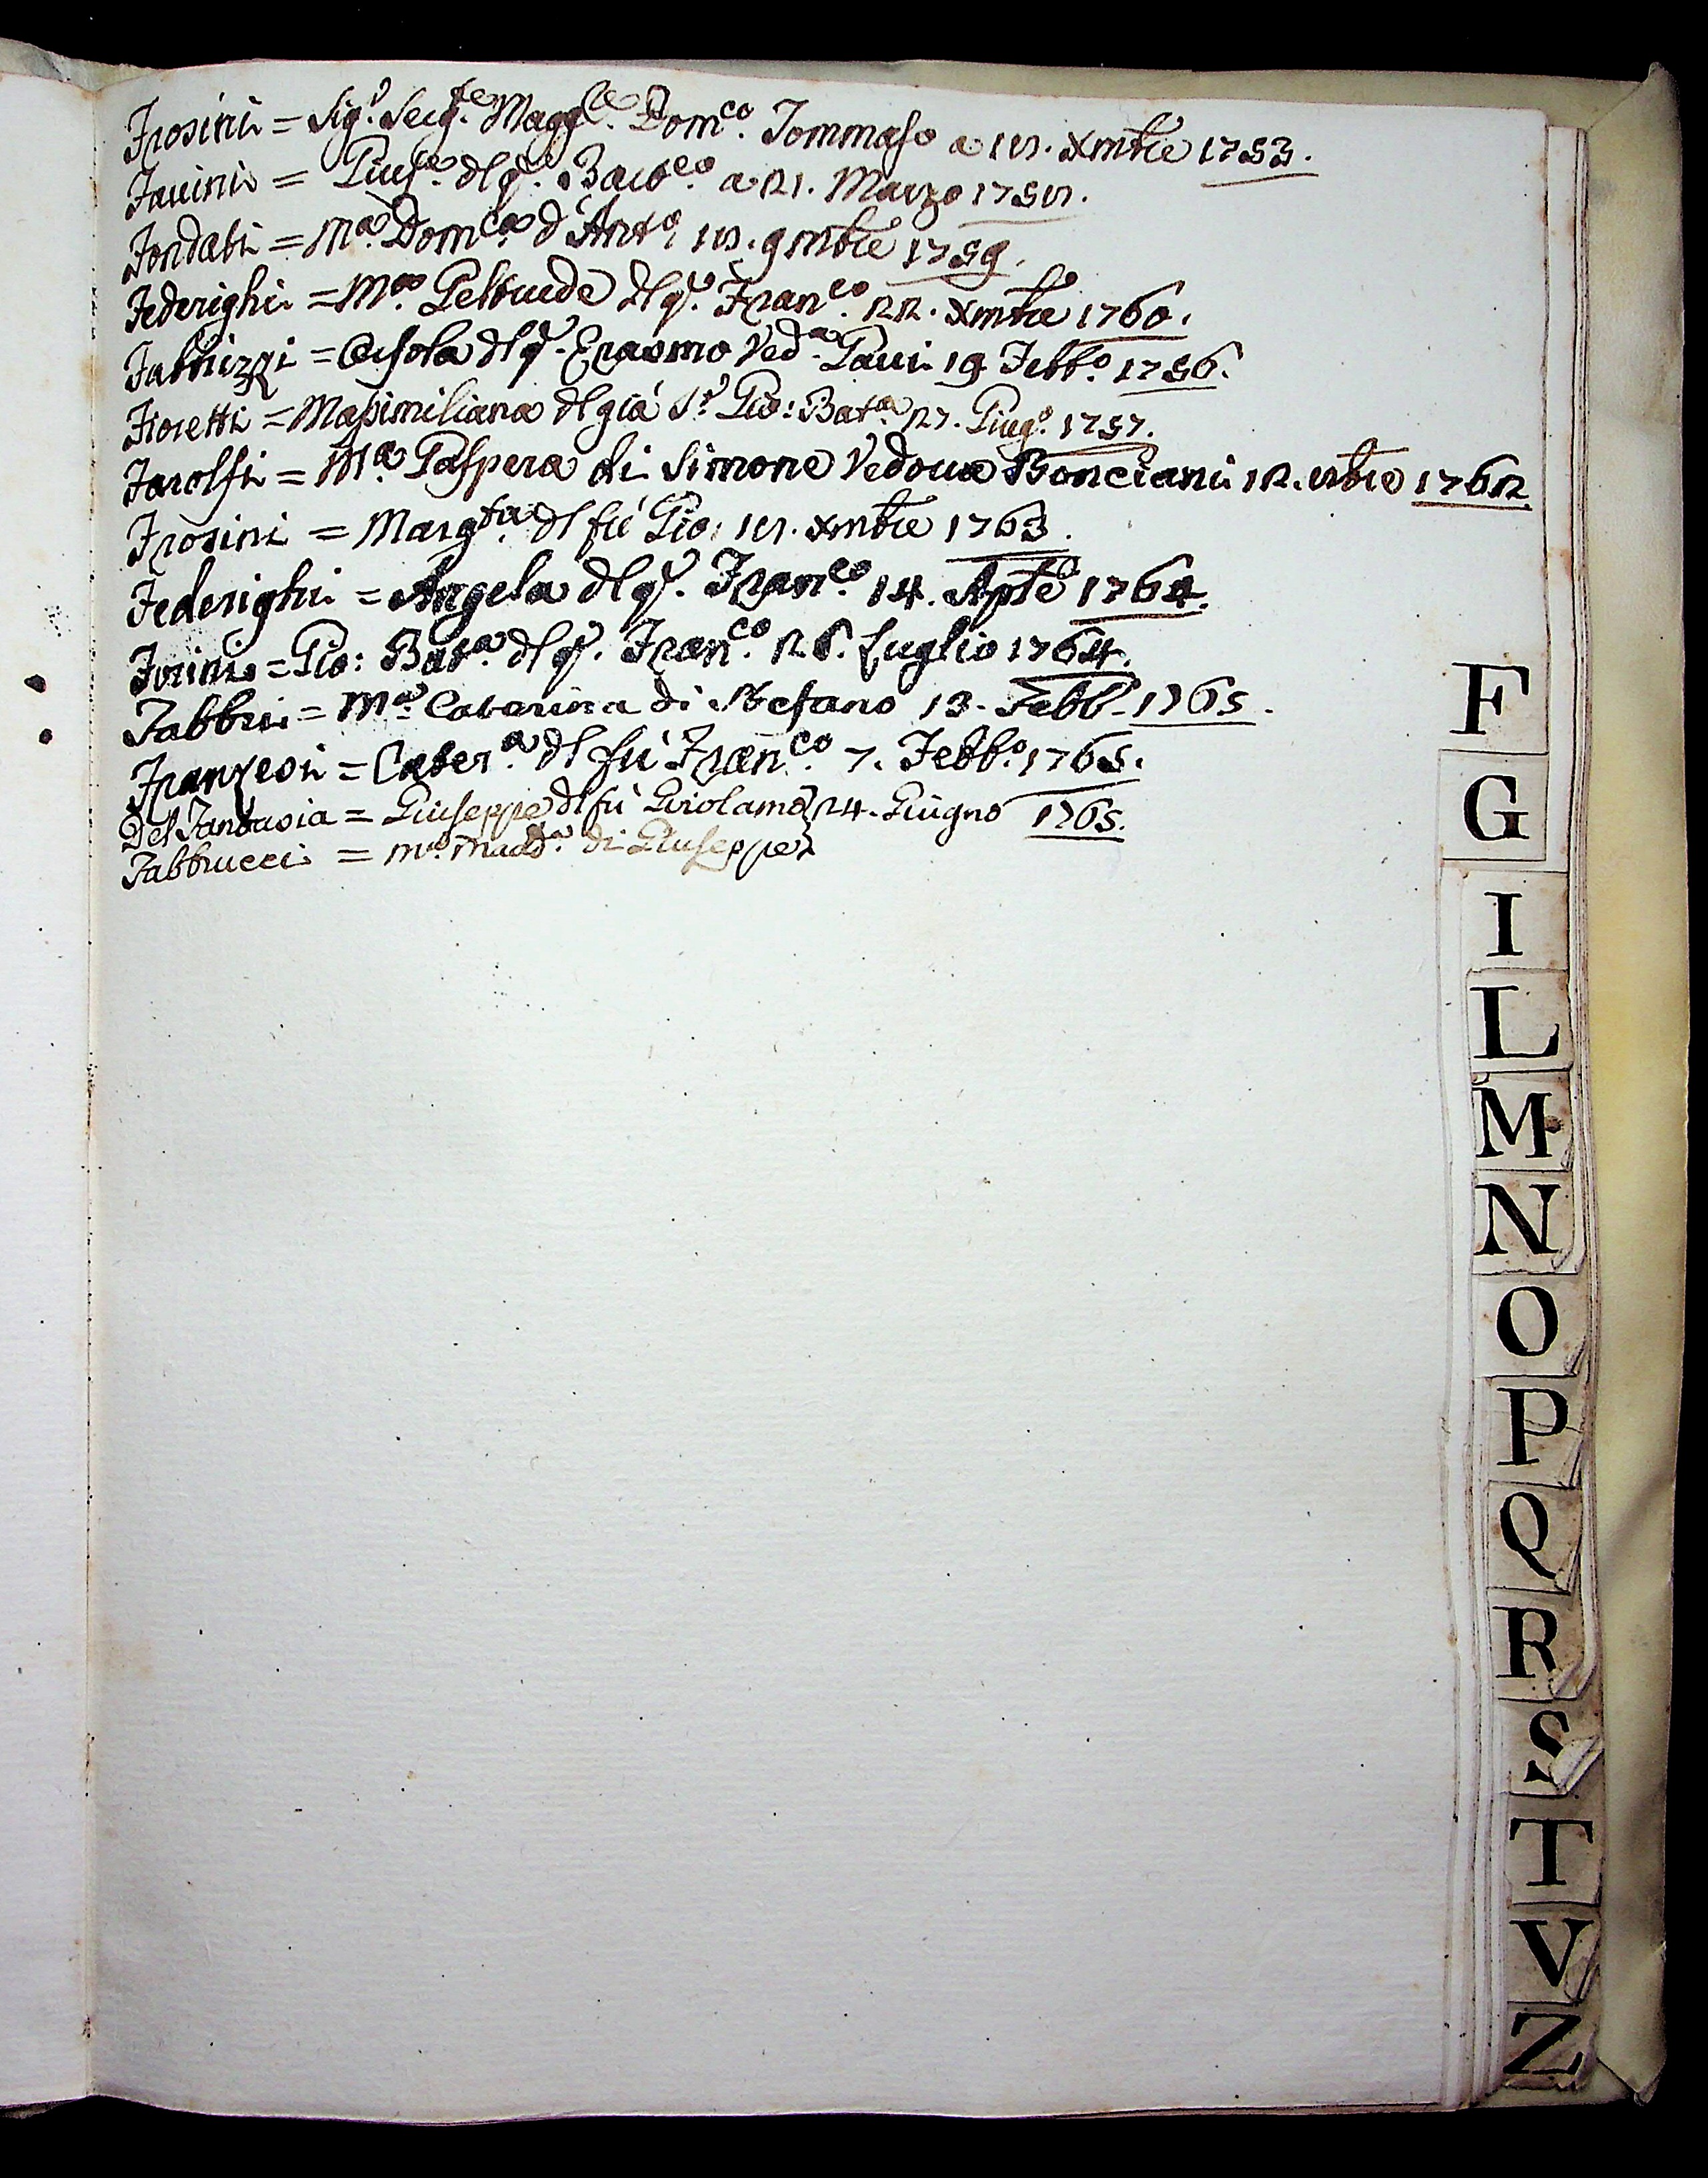 Frosini = Sig.r Serg.te Magg.re Dom.co Tommaso a 15. Xmbre 1753.
Favini = Gius.e del q. Bart.eo a 21. Marzo 1755.
Fondati = M.a Dom.ca d'Ant.o 15. 9mbre 1759.
Federighi = M.a Geltrude del q. Fran.co 22. Xmbre 1760.
Fabbrizzi = Orsola del q. Erasmo Ved.a Pauri 19 Febb.o 1756.
Fioretti = Massimiliana del già S.r Gio: Bat.a 27. Giug.o 1757.
Farolfi = M.a Gaspera di Simone Vedova Bonciani 12. 1762
Frosini = Marg.ta del fù Gio: 15. Xmbre 1763.
Federighi = Angela del q. Fran.co 14. Aple 1764.
Forini = Gio: Bat.a del q. Fran.co 26. Luglio 1764.
Fabbri = M.a Catarina di Stefano 13. Febb. 1765.
Franzesi = Cater.a del fù Fran.co 7. Febb.o 1765.
Del Fantasia = Giuseppe del fù Girolamo} 24. Giugno 1765.
Fabbrucci = M.a Madd.a di Giuseppe}
F
G
I
L
M
N
O
P
Q
R
S
T
V
Z